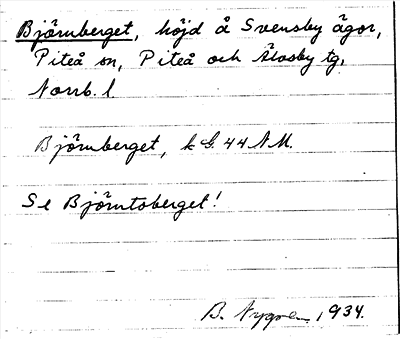 Björnberget, höjd å Svensby ägor,
Piteå sn, Piteå och Älvsby tg,
Norrb. l.
Björnberget, k G. 44 N.M.
Se Björntoberget!
B. Nygren, 1934.